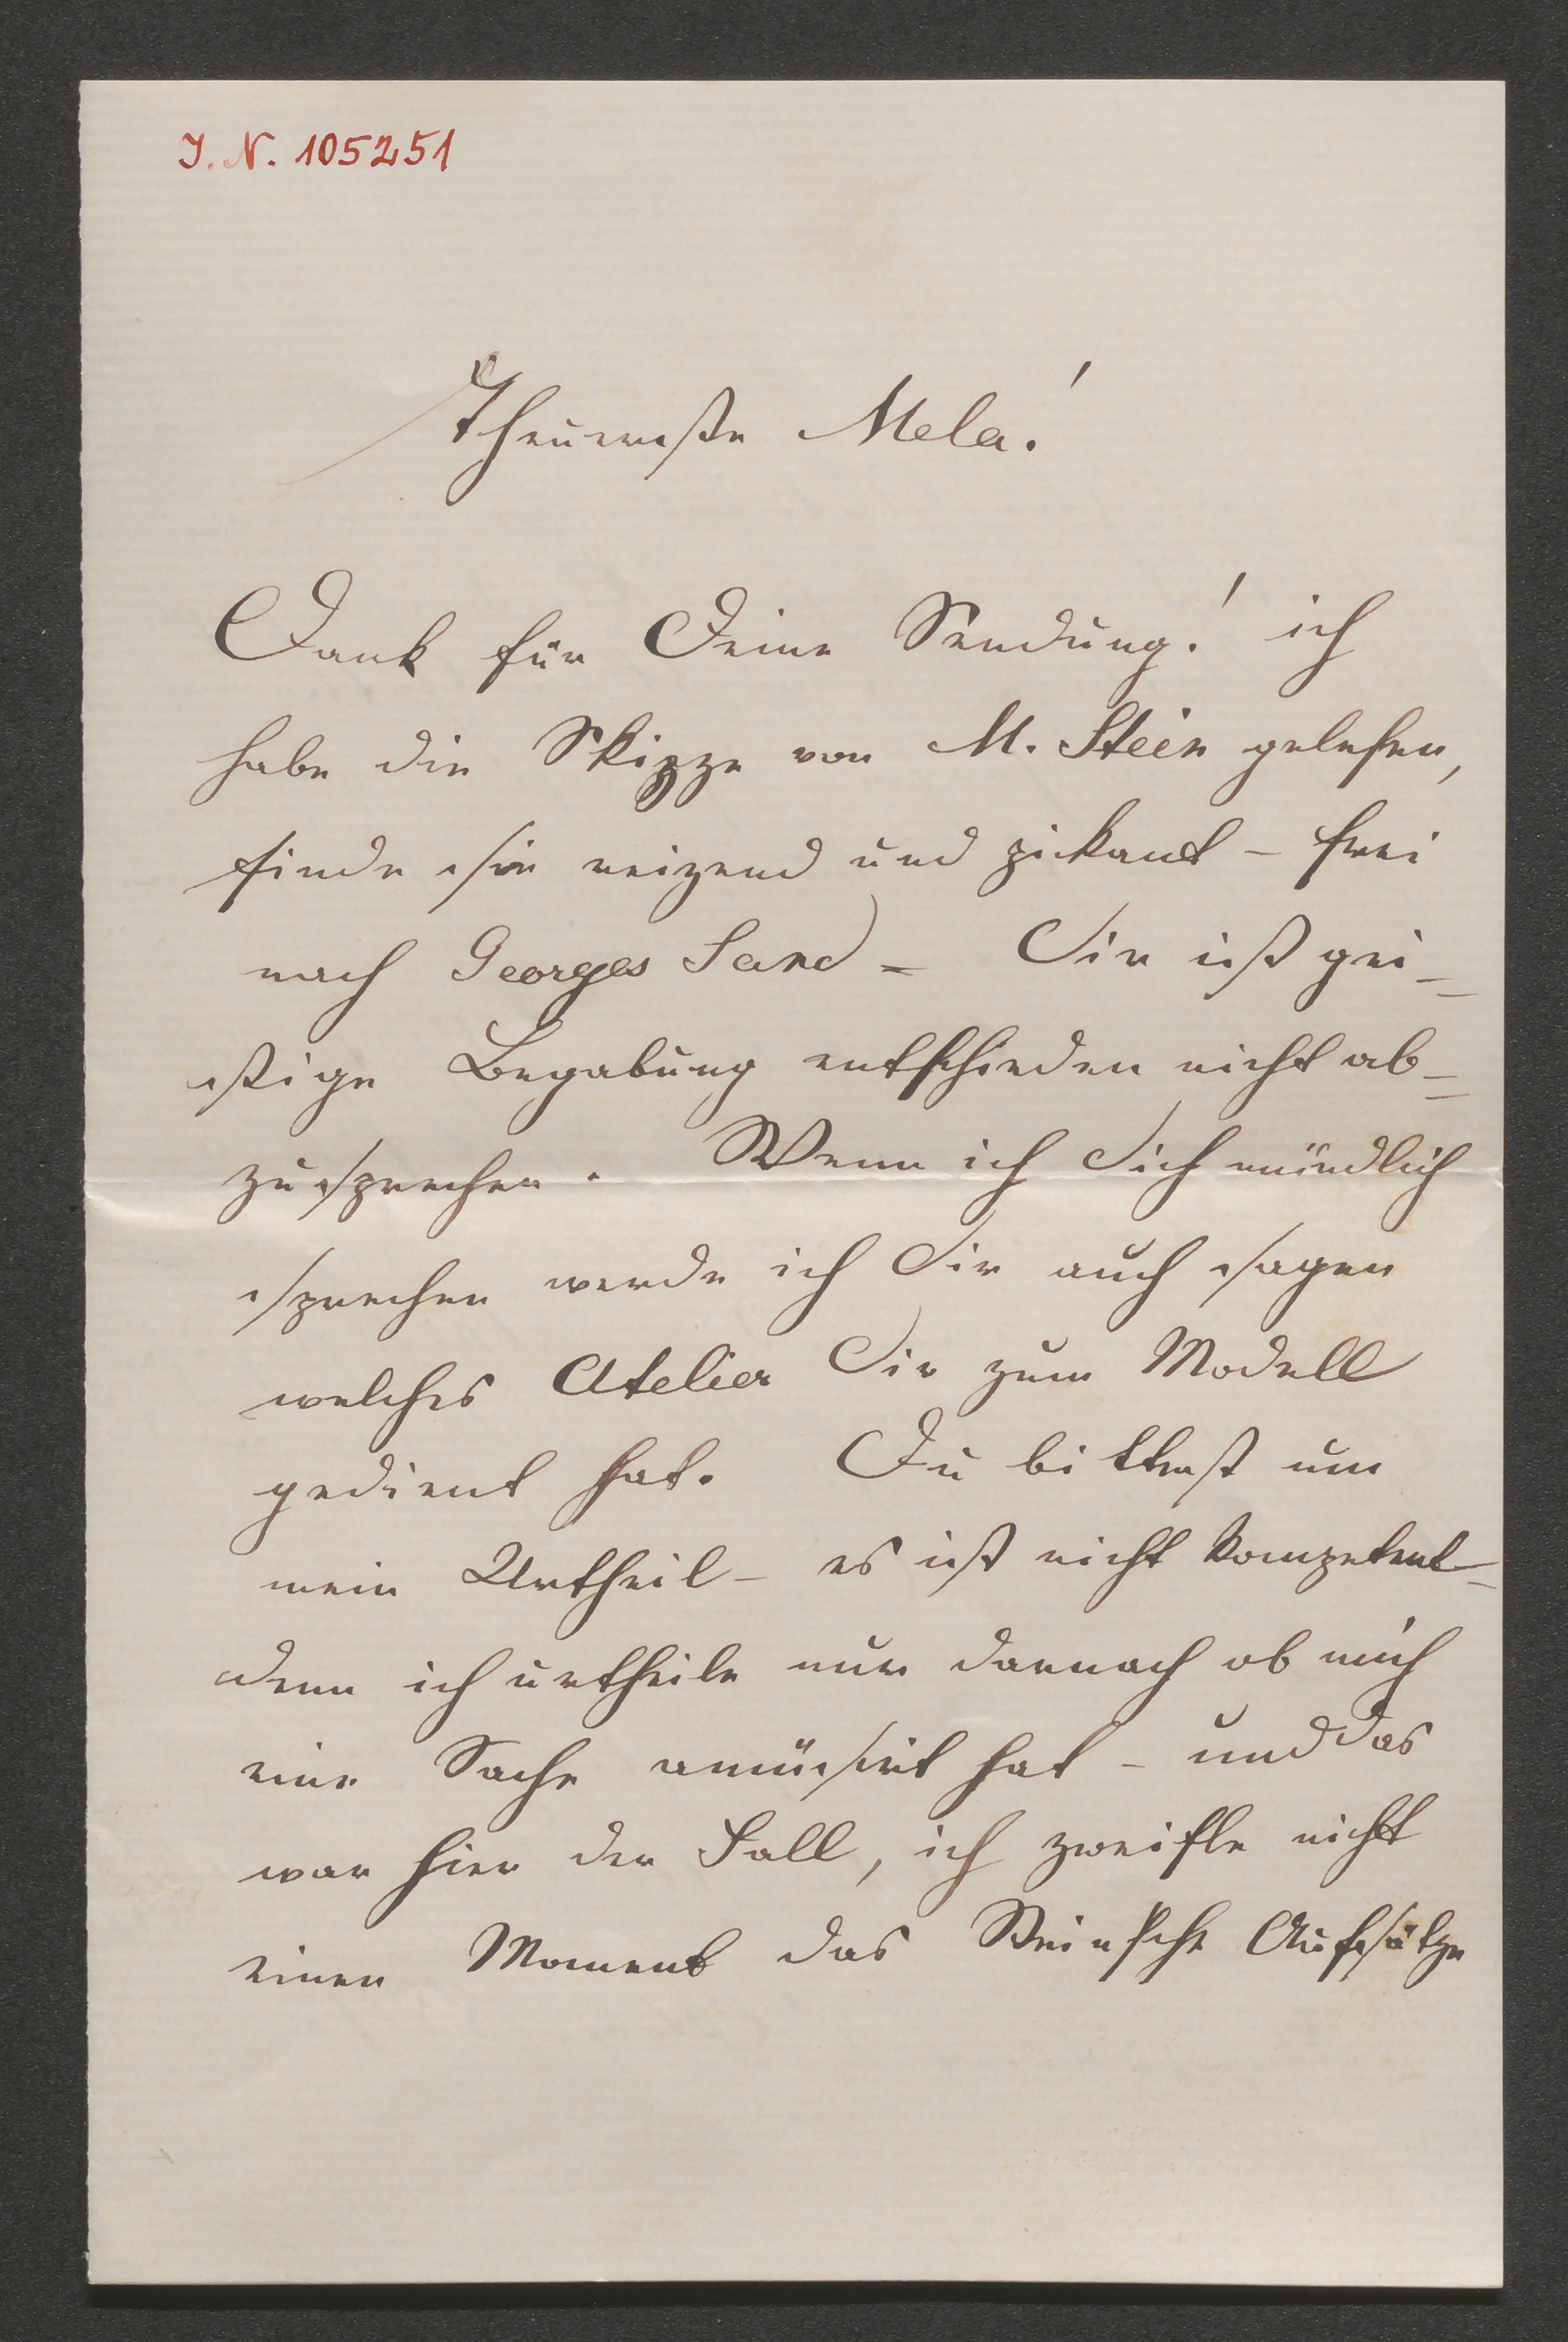 J. N. 105251
Theuerste Mela!
Dank für Deine Sendung! ich
habe die Skizze von M. Stein gelesen,
finde sie reizend und pickant – frei
nach Georges Sand = Dir ist gei=
stige Begabung entschieden nicht ab=
zusprechen. Wenn ich Dich mündlich
sprechen werde ich Dir auch sagen
welches Atelier Dir zum Modell
gedient hat. Du bittest um
mein Urtheil – es ist nicht kompetent –
denn ich urtheile nur darnach ob mich
eine Sache amüsirt hat – und das
war hier der Fall, ich zweifle nicht
einen Moment das Stein'sche Aufsätze